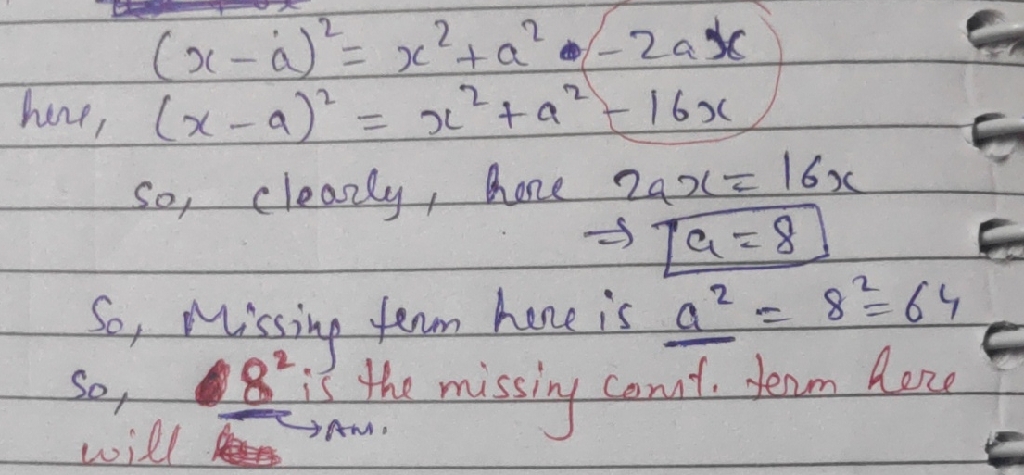 (x - a)² = x² + a² - 2ax
here, (x - a)² = x² + a² - 16x
So, clearly, here 2ax = 16x
⇒ a = 8
So, Missing term here is a² = 8² = 64
So, 8² is the missing const. term here
→ Ans.
will